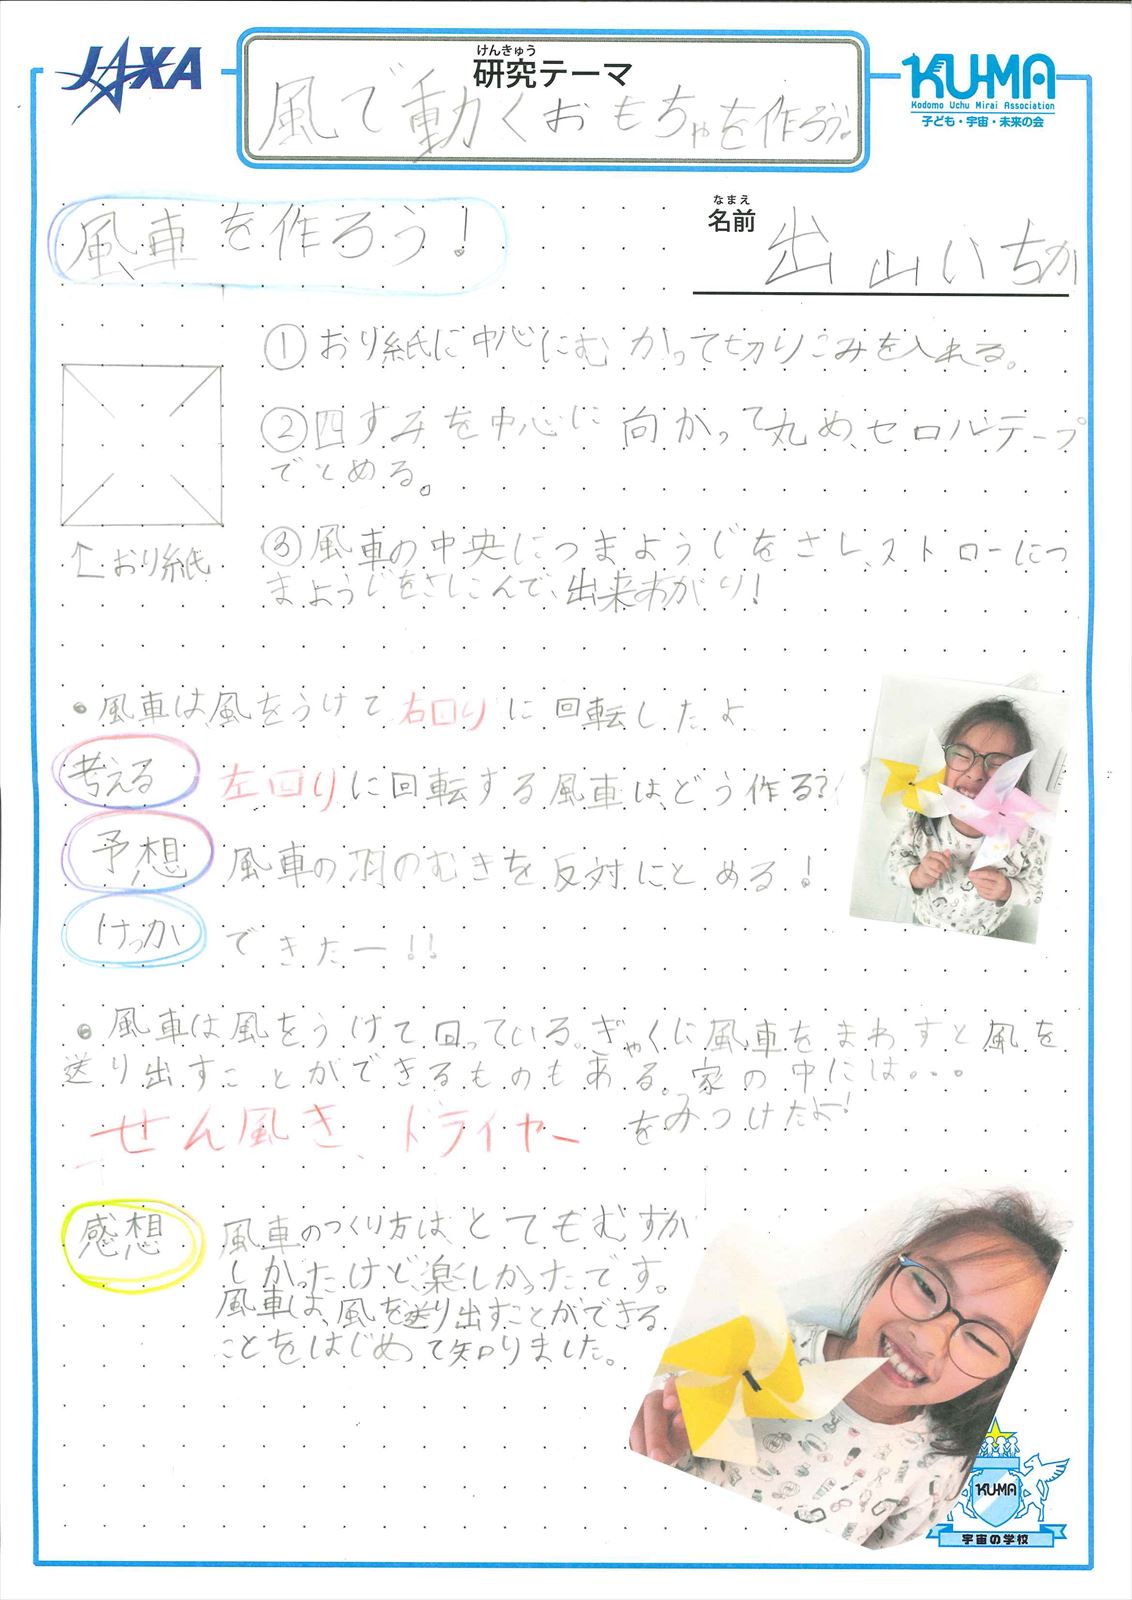 JAXA
けんきゅう
研究テーマ
風で動くおもちゃを作ろう!
KU-MA
Kodomo Uchu Mirai Association
子ども・宇宙・未来の会
風車を作ろう!
なまえ
名前
出山いちか
①おり紙に中心にむかって切りこみを入れる。
②四すみを中心に向かって丸め、セロハンテープ
でとめる。
↑おり紙
③風車の中央につまようじをさし、ストローにつ
まようじをさしこんで、出来あがり!
・風車は風をうけて右回りに回転したよ
考える
左回りに回転する風車は、どう作る?
予想
風車の羽のむきを反対にとめる!
けっか
できたー!!
・風車は風をうけて回っている。ぎゃくに風車をまわすと風を
送り出すことができるものもある。家の中には...
せん風き、ドライヤー をみつけたよ!
感想
風車のつくり方は、とてもむずか
しかったけど、楽しかったです。
風車は、風を送り出すことができる
ことをはじめて知りました。
KU-MA
宇宙の学校